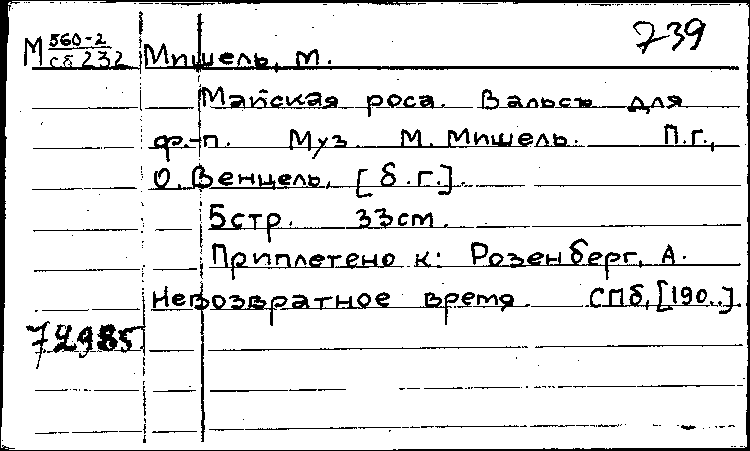 739
М 560-2
сб 232 Мишель, М.
Майская роса. Вальсъ для
ф.-п. Муз. М. Мишель. П.г.,
О. Венцель, [б.г.].
5 стр. 33 см.
Приплетено к: Розенберг, А.
Невозвратное время. СПб, [190..].
72985